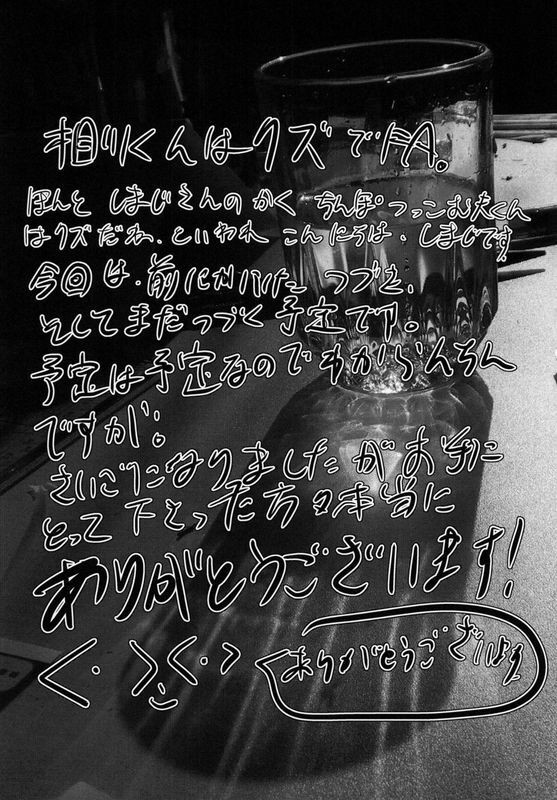 相川くんはクズでFA。
ほんと しまじさんの かく ちんぽつっこむ夫くん
はクズだね、といわれ こんにちは、しまじです!
今回は、前にかいた つづき、
そしてまだつづく予定です。
予定は予定なのでわからんちん
ですが。
さいごになりましたがお手に
とって下さった方々本当に
ありがとうございます!
ありがとうございます